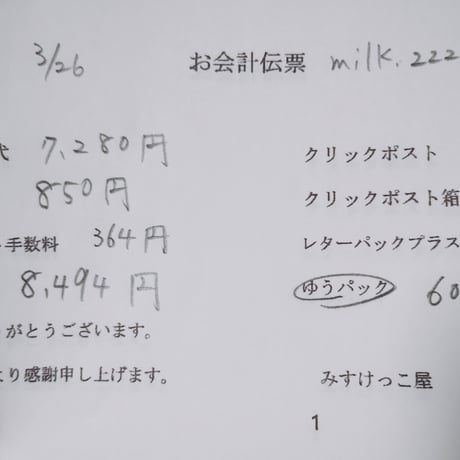 3/26 お会計伝票 milk.222
代 7,280円 クリックポスト
850円 クリックポスト箱
手数料 364円 レターパックプラス
8,494円 ゆうパック 60
がとうございます。
より感謝申し上げます。 みすけっこ屋
1